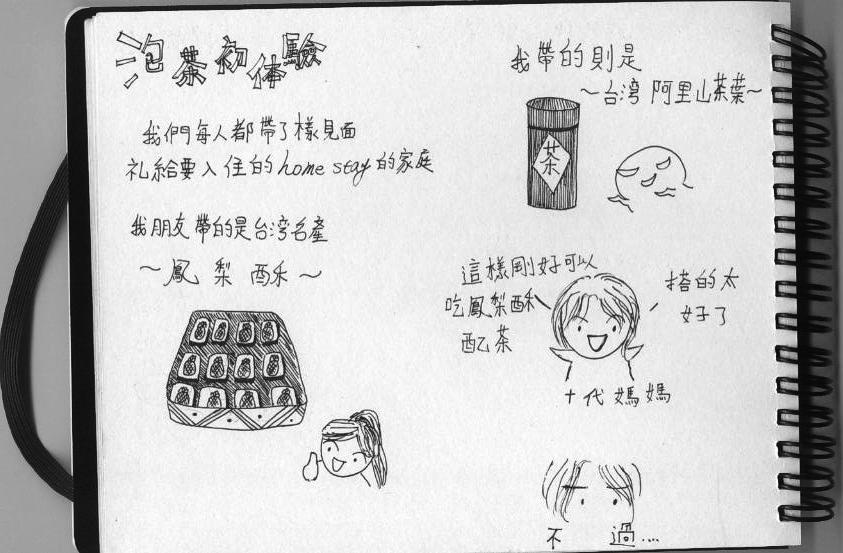 泡茶初体驗
我們每人都帶了樣見面
礼給要入住的home stay的家庭
我朋友帶的是台湾名產
～鳳梨酥～
我帶的則是
～台湾阿里山茶葉～
茶
這樣剛好可以
吃鳳梨酥
配茶
搭的太
好了
十代媽媽
不過...